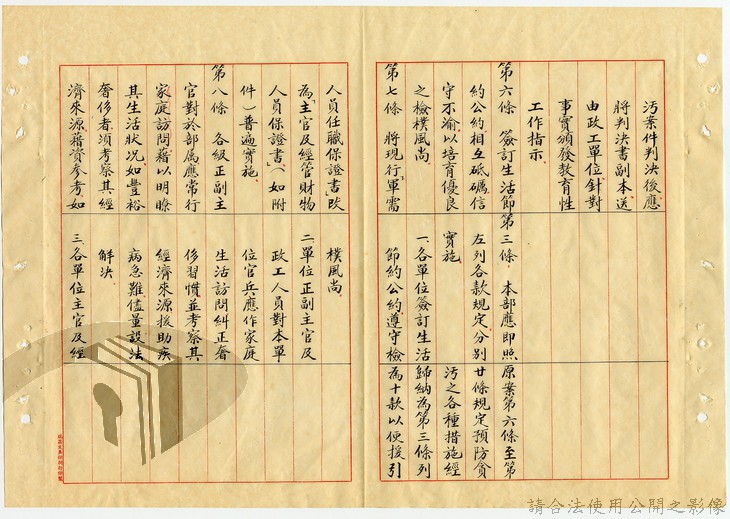 污案件判決後應
將判決書副本送
由政工單位針對
事實頒發教育性
工作指示
第六條　簽訂生活節
約公約相互砥礪信
守不渝以培育優良
之檢樸風尚
第七條　將現行軍需
人員任職保證書改
為「主官及經管財物
人員保證書」（如附
件）普遍實施
第八條　各級正副主
官對於部屬應常行
家庭訪問藉以明瞭
其生活狀況如豐裕
奢侈者須考察其經
濟來源藉資參考如
第三條　本部應即照
左列各款規定分別
實施
一、各單位簽訂生活
節約公約遵守檢
樸風尚
二、單位正副主官及
政工人員對本單
位官兵應作家庭
生活訪問糾正奢
侈習慣並考察其
經濟來源援助疾
病急難儘量設法
解決
三、各單位主官及經
原案第六條至第
廿條規定預防貪
污之各種措施經
歸納為第三條列
為十款以便援引
請合法使用公開之影像